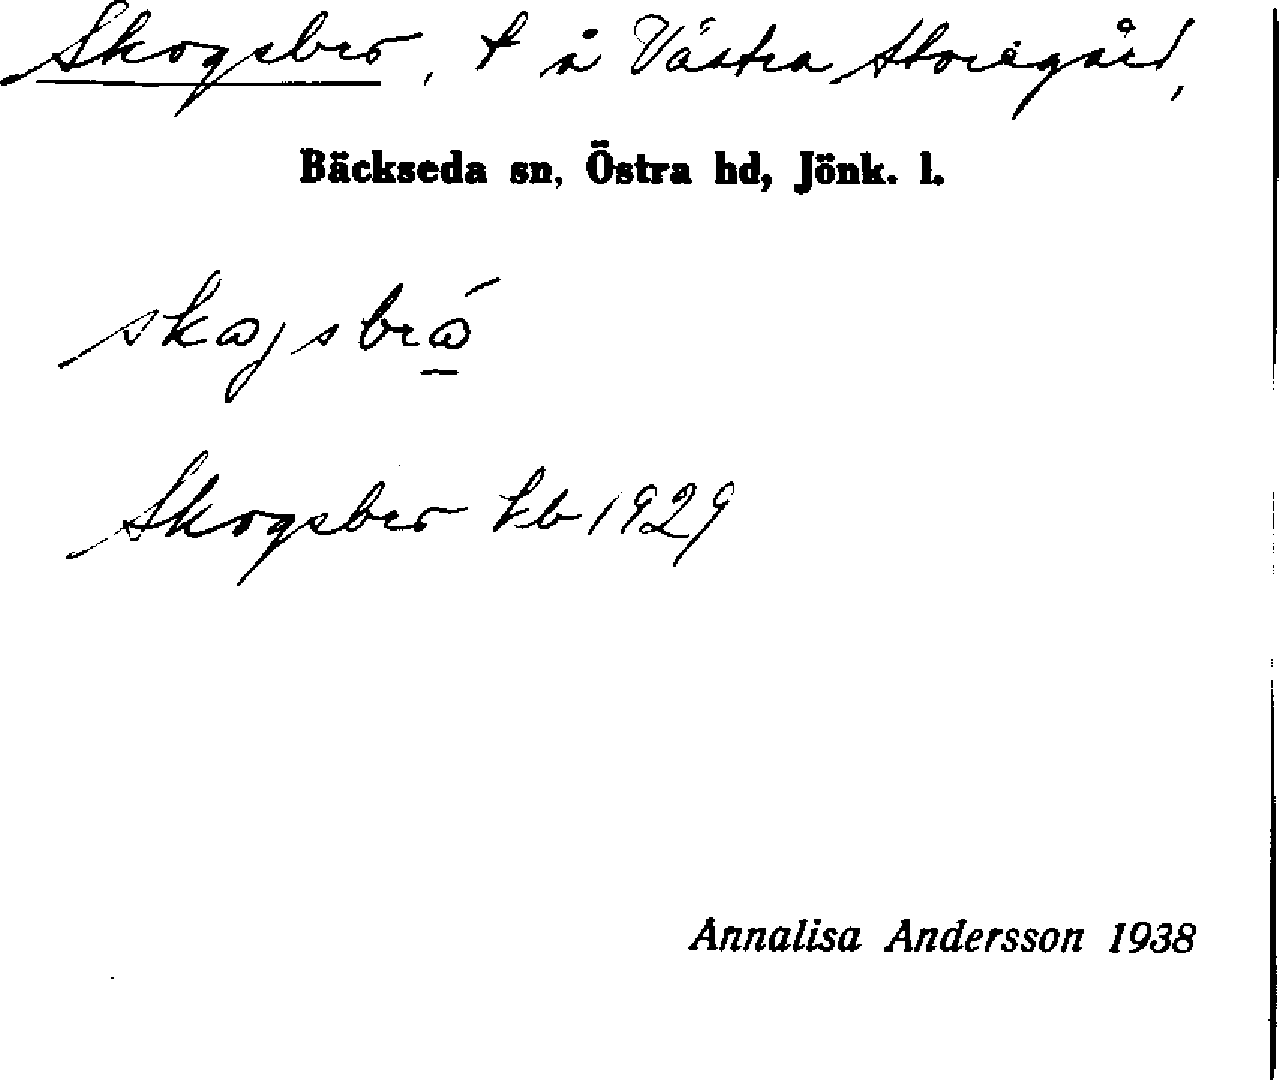 Skogsbro, t å Västra Storegård,
Bäckseda sn, Östra hd, Jönk. l.
Skogsbro kb 1929
Annalisa Andersson 1938